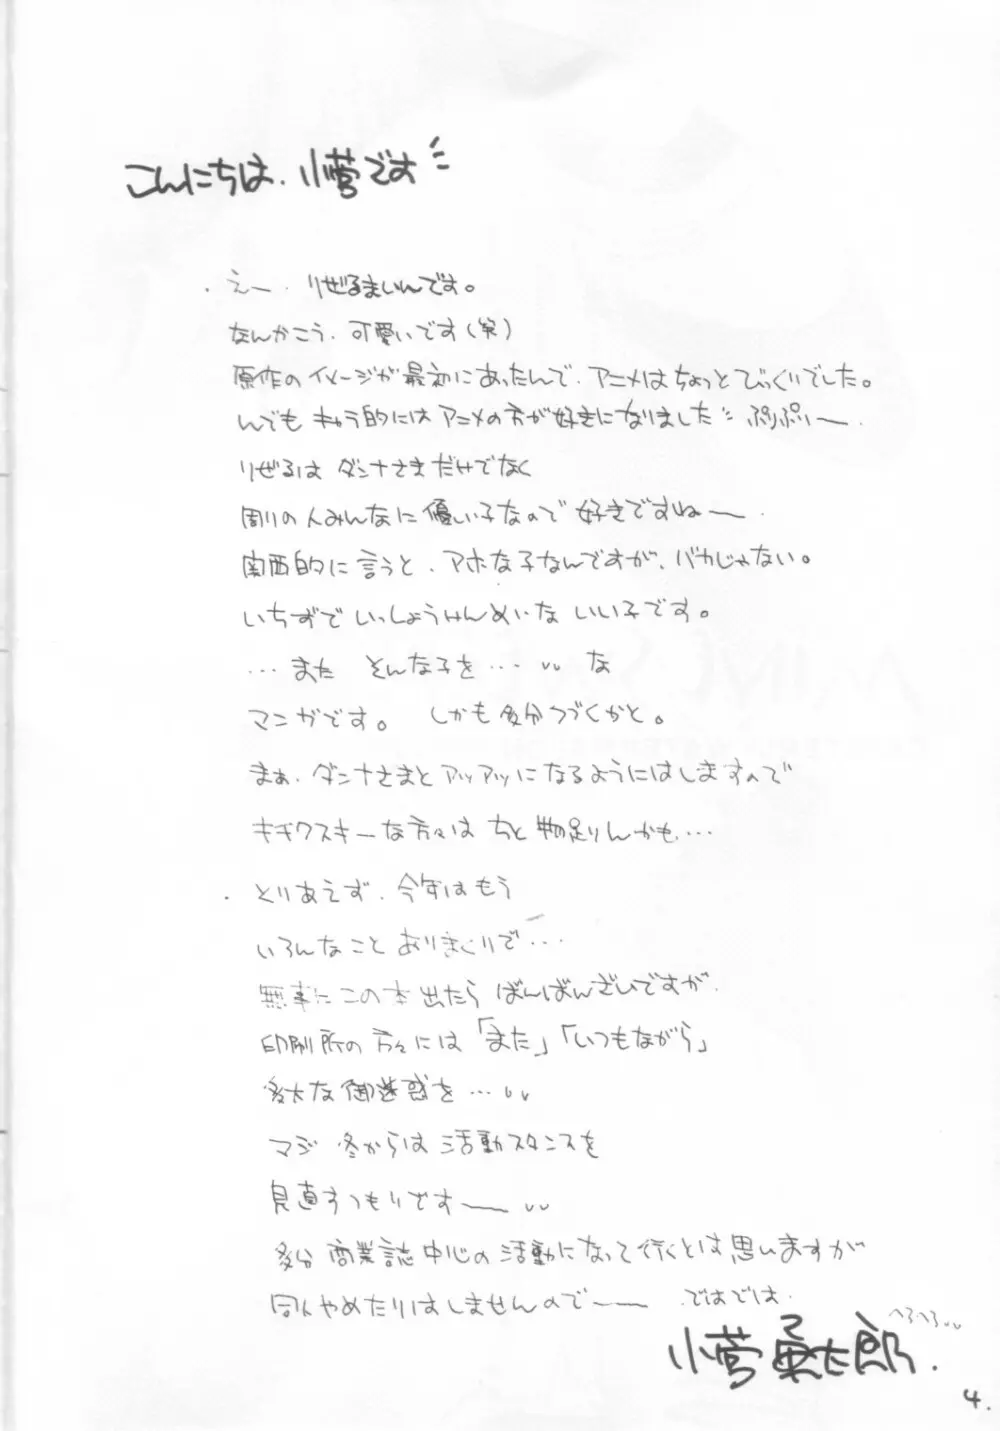 こんにちは、小菅です
・えー、りぜるまいんです。
なんかこう、可愛いです(笑)
原作のイメージが最初にあったんで、アニメはちょっとびっくりでした。
んでも キャラ的にはアニメの方が好きになりました ぷりぷりー
りぜるは ダンナさまだけでなく
周りの人みんなに優しい子なので 好きですねー
関西的に言うと、アホな子なんですが、バカじゃない。
いちずで いっしょうけんめいな いい子です。
…また そんな子を… な
マンガです。 しかも多分つづくかと。
まぁ、ダンナさまと アツアツになるようにはしますので
キチクスキーな方々は ちと物足りんかも…
・とりあえず、今年はもう
いろんなこと ありまくりで…
無事に この本出たら ばんばんざいですが、
印刷所の方々には「また」「いつもながら」
多大な御迷惑を…
マジ 冬からは 活動スタンスを
見直すつもりですー
多分 商業誌中心の活動になって行くとは思いますが
同人やめたりはしませんのでー ではでは。
へろへろ
小菅 勇太郎.
4.